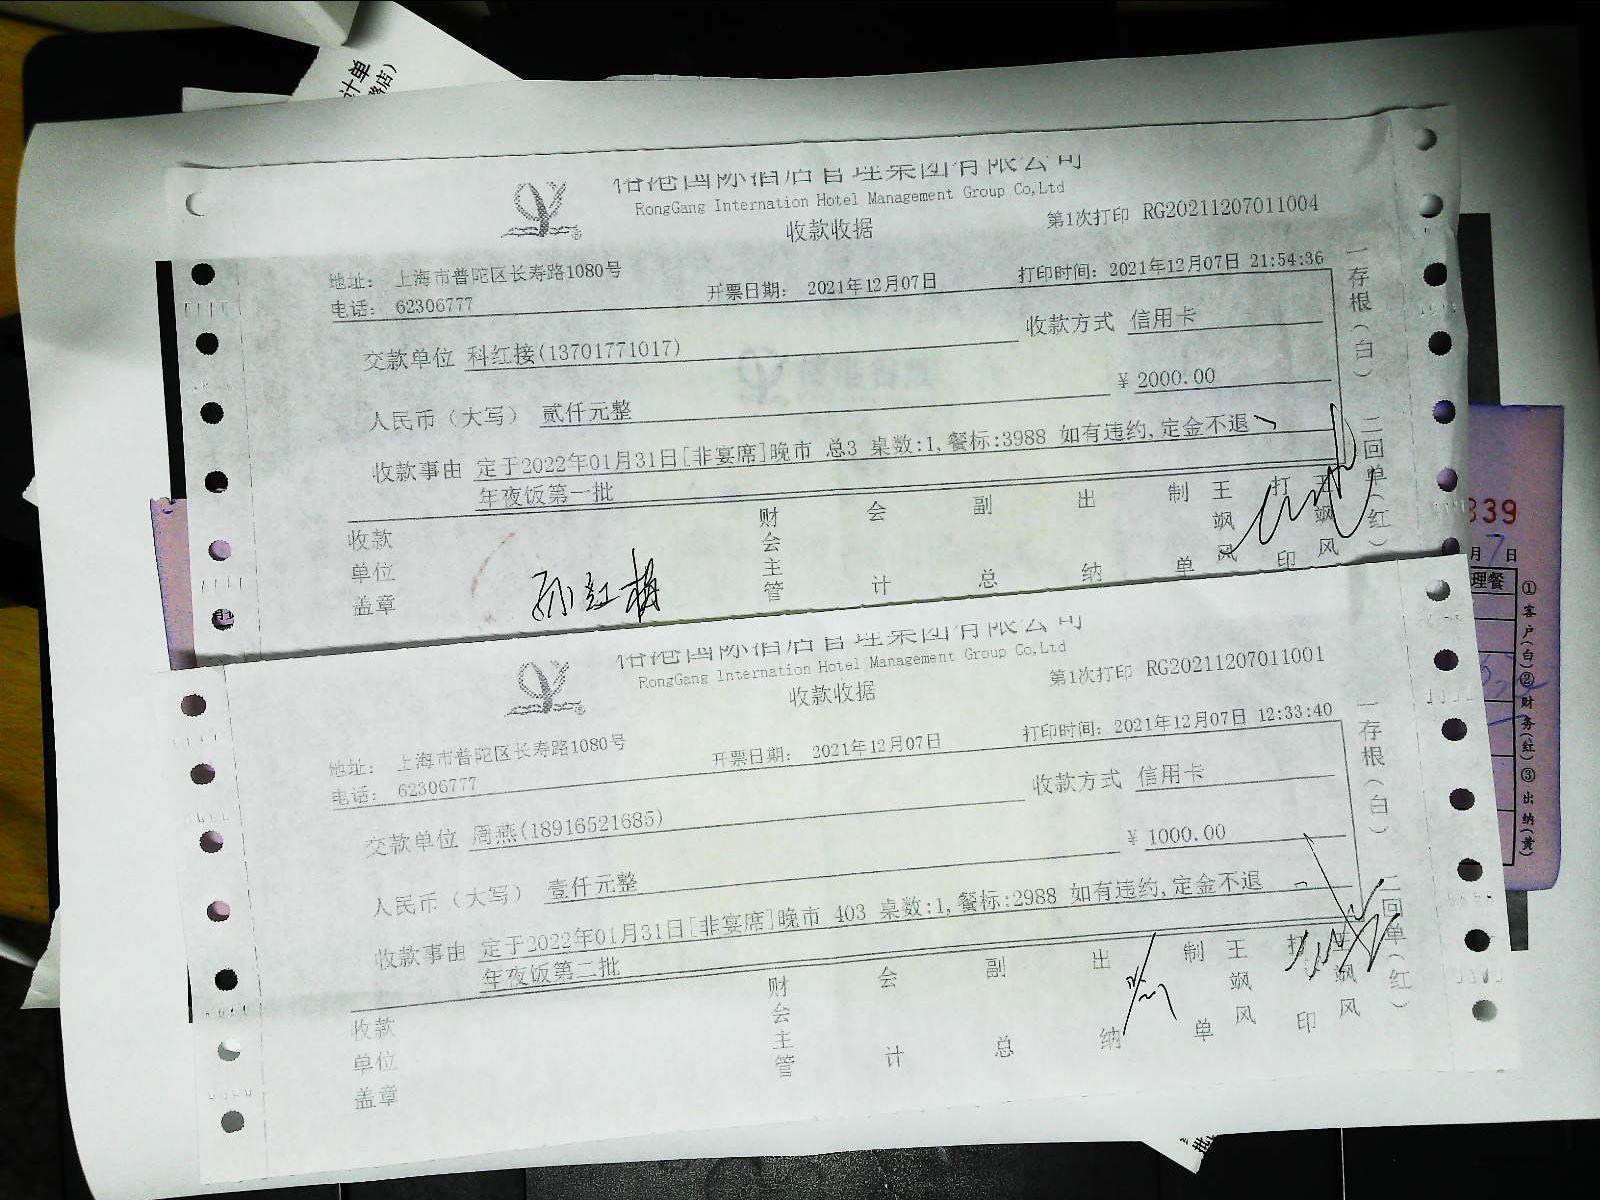 计单
路店）
国际酒店管理集团有限公司
RongGang Internation Hotel Management Group Co,Ltd
收款收据
第1次打印 RG20211207011004
地址： 上海市普陀区长寿路1080号
电话： 62306777
开票日期： 2021年12月07日
打印时间：2021年12月07日 21:54:36
交款单位 科红接(13701771017)
收款方式 信用卡
人民币（大写） 贰仟元整
¥ 2000.00
收款事由 定于2022年01月31日[非宴席]晚市 总3 桌数:1,餐标:3988 如有违约,定金不退
年夜饭第一批
收款单位盖章
孙红梅
财会主管
会计
副总
出纳
制单
王飒风
打印
王飒风
一存根（白） 二回单（红）
国际酒店管理集团有限公司
RongGang Internation Hotel Management Group Co,Ltd
收款收据
第1次打印 RG20211207011001
地址： 上海市普陀区长寿路1080号
电话： 62306777
开票日期： 2021年12月07日
打印时间：2021年12月07日 12:33:40
交款单位 周燕(18916521685)
收款方式 信用卡
人民币（大写） 壹仟元整
¥ 1000.00
收款事由 定于2022年01月31日[非宴席]晚市 403 桌数:1,餐标:2988 如有违约,定金不退
年夜饭第二批
收款单位盖章
财会主管
会计
副总
出纳
制单
王飒风
打印
王飒风
一存根（白） 二回单（红）
339
月7日
理餐
①客户(白)②财务(红)③出纳(黄)